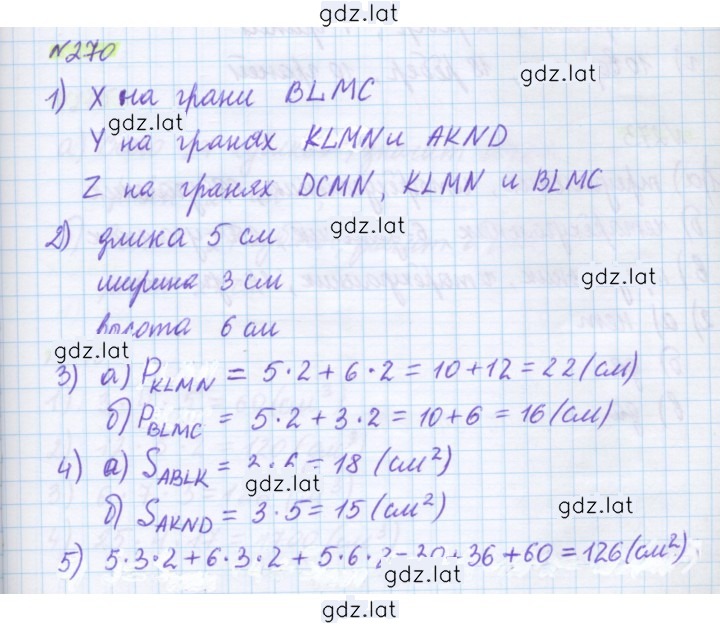 gdz.lat
№270
gdz.lat
1) X на грани BLMC
gdz.lat
Y на гранях KLMN и AKND
Z на гранях DCMN, KLMN и BLMC
gdz.lat
2) длина 5 см
ширина 3 см
gdz.lat
высота 6 см
gdz.lat
3) а) P KLMN = 5·2 + 6·2 = 10 + 12 = 22 (см)
б) P BLMC = 5·2 + 3·2 = 10 + 6 = 16 (см)
4) а) S ABLK = = 18 (см²)
gdz.lat
б) S AKND = 3·5 = 15 (см²)
gdz.lat
5) 5·3·2 + 6·3·2 + 5·6· 36 + 60 = 126 (см²)
gdz.lat
gdz.lat